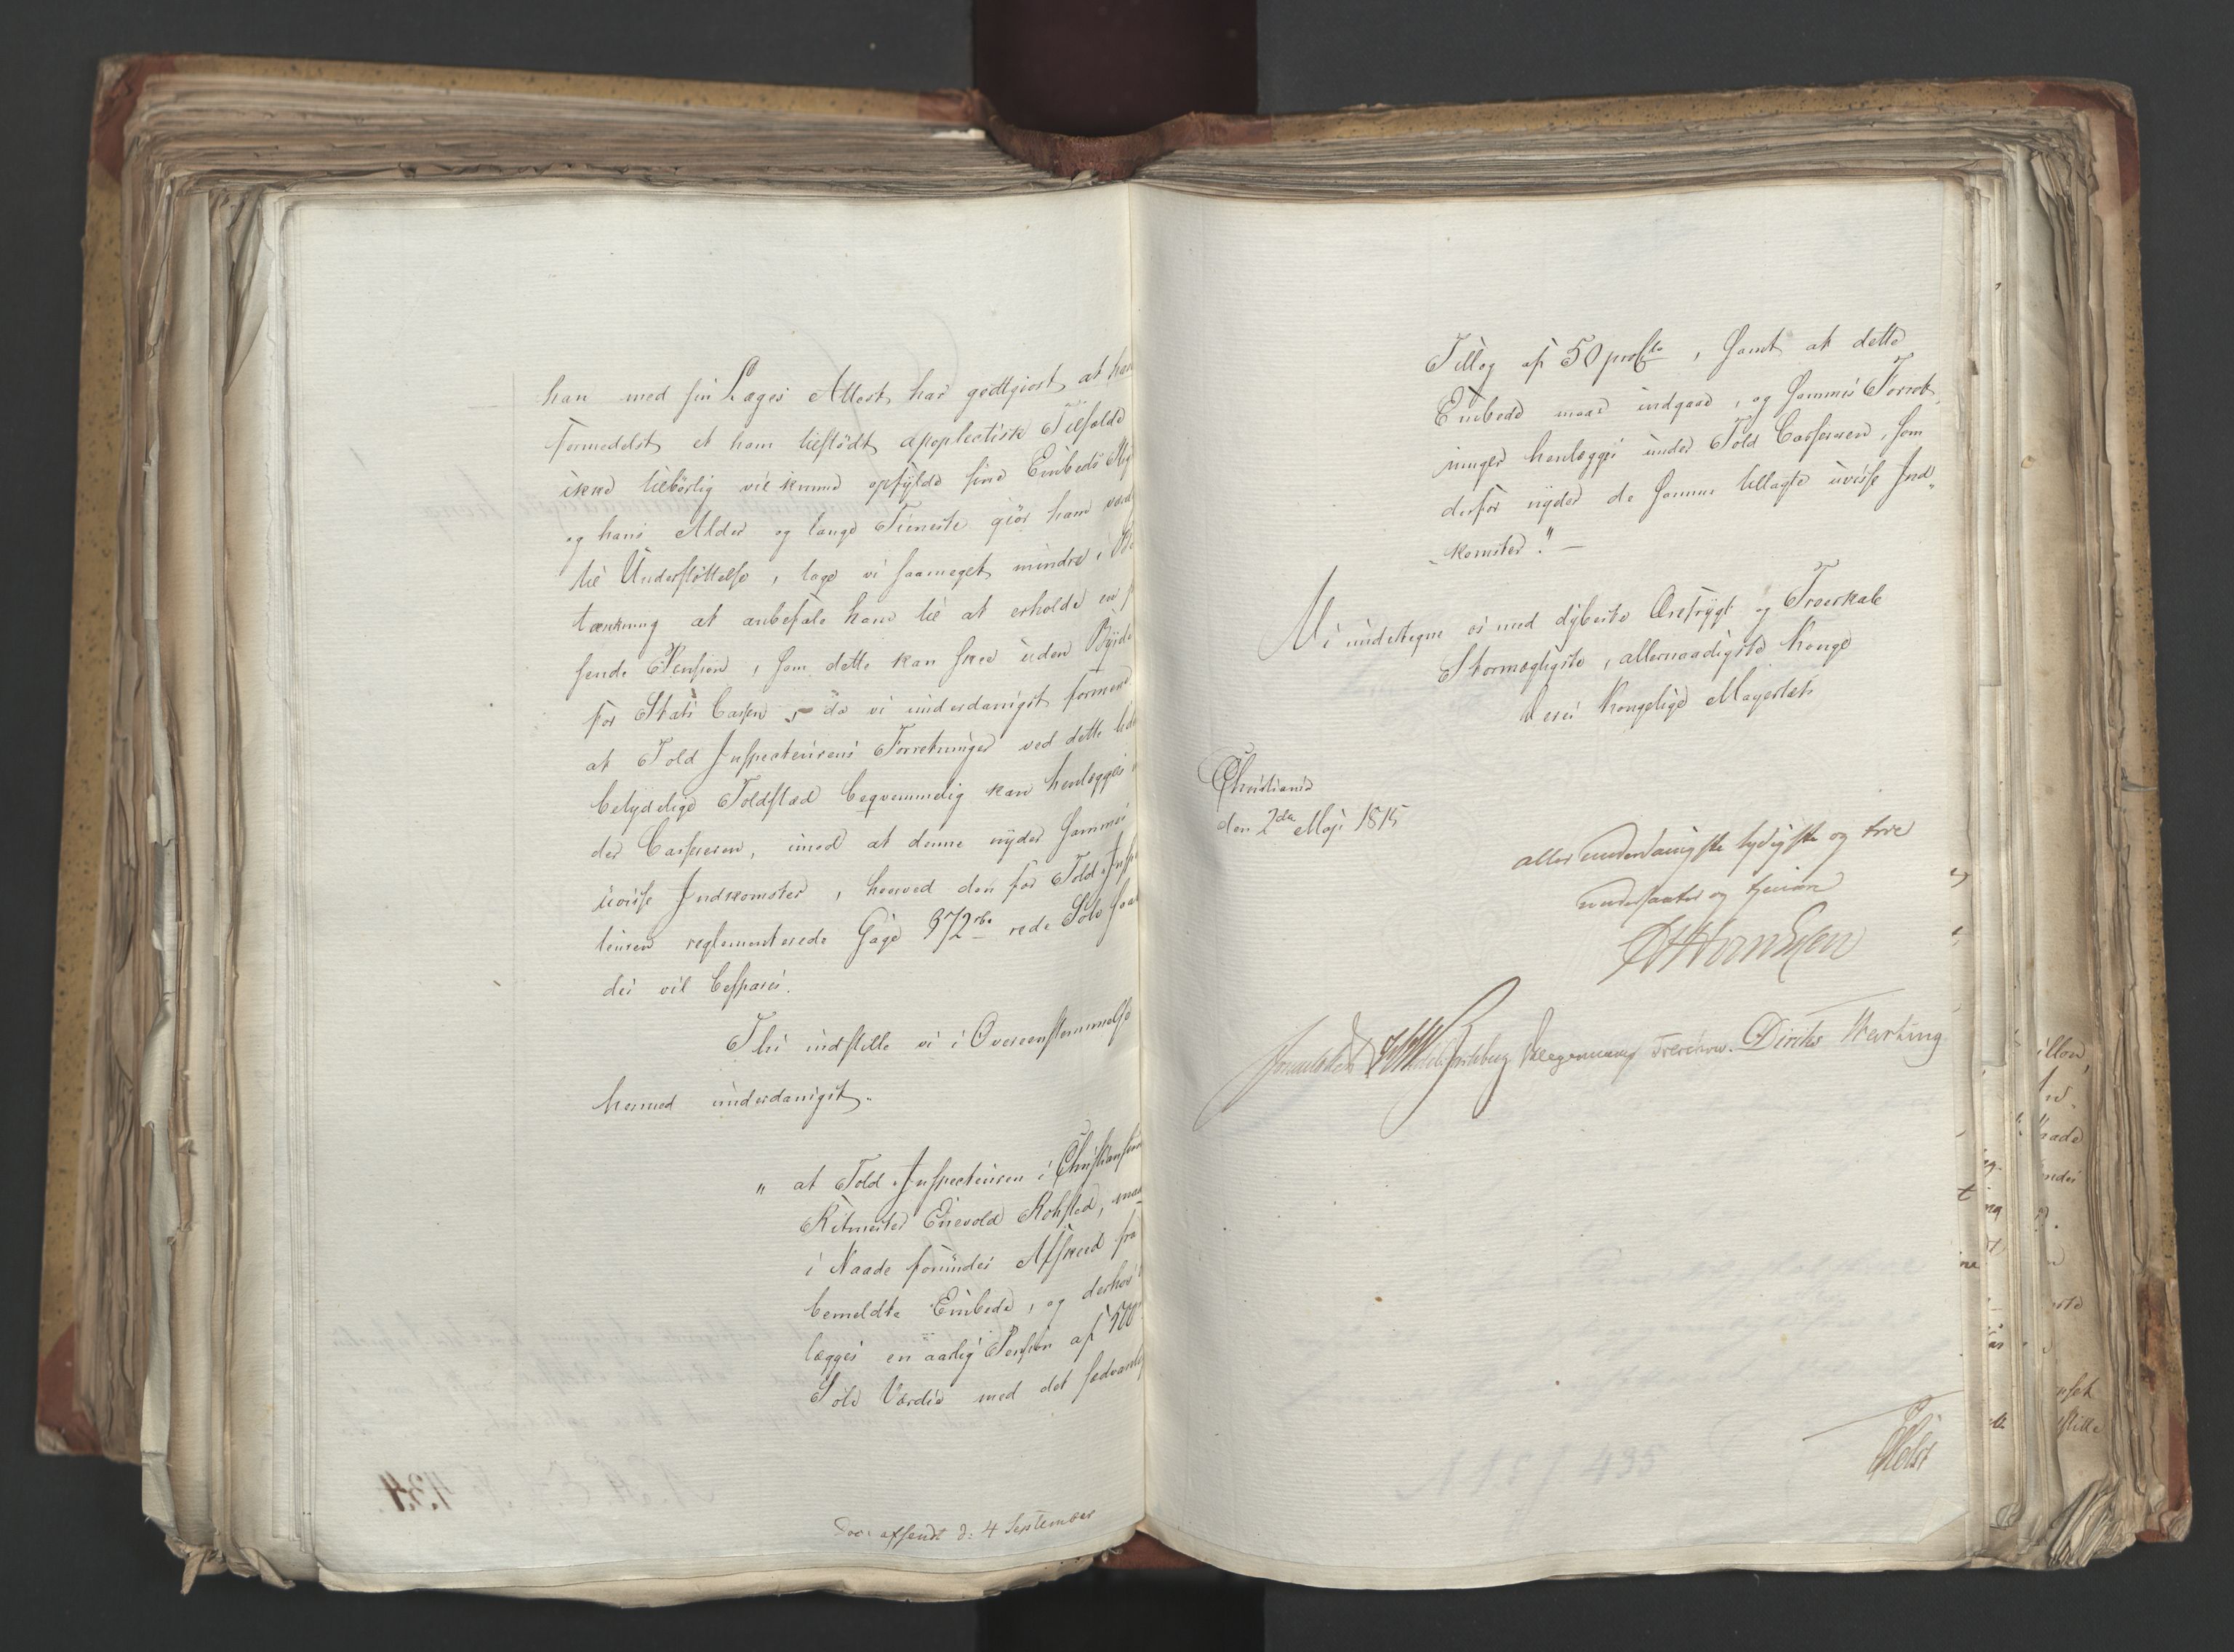 han med sin Læges Attest har godtgjort, at han
formedelst et ham tilstødt apoplectisk Tilfælde
ikke tilbørlig vil kunne opfylde sine Embeds
og hans Alder og lange Tieneste giør ham værd
til Understøttelse, tage vi saameget mindre i Be
tænkning at anbefale ham til at erholde en p
sende Pension, som dette kan skee uden Byrde
for Stats Cassen, da vi underdanigst formene
at Told Inspecteurens Forretninger ved dette
betydelige Toldsted beqvemmelig kan henlægges
der Casserern, imod at denne nyder sammes
uvisse Indkomster, hvorved den for Told Insp
teuren reglementerede Gage 372 rbd rede Sølv
des vil bespares.
Thi indstille vi i Overeensstemmelse
hermed underdanigst.
" at Told Inspecteuren i Christiansund
Ritmester Enevold Rohsted, maa
i Naade forundes Afskeed fra
bemeldte Embede, og derhos
lægges en aarlig Pension af 500
Sølv Værdie med det sædvanlig
Doc: afsendt d: 4 September
Tillæg af 50 proCto, samt at dette
Embede maae indgaae, og sammes Forret,
ninger henlægges under Told Casseren, som
derfor nyder de samme tillagte uvisse Ind,,
komster." —
Vi undertegne os med dybeste Ærefrygt og Troeskab
Stormægtigste, allernaadigste Konge
Deres Kongelige Mayestæts
Christiania
den 2den Maji 1815
allerunderdanigste lydigste og troe
undersaatter og tjenere
Sommerhielm Wedel Jarlsberg Krogh Treschow. Diriks Hertung
Holst